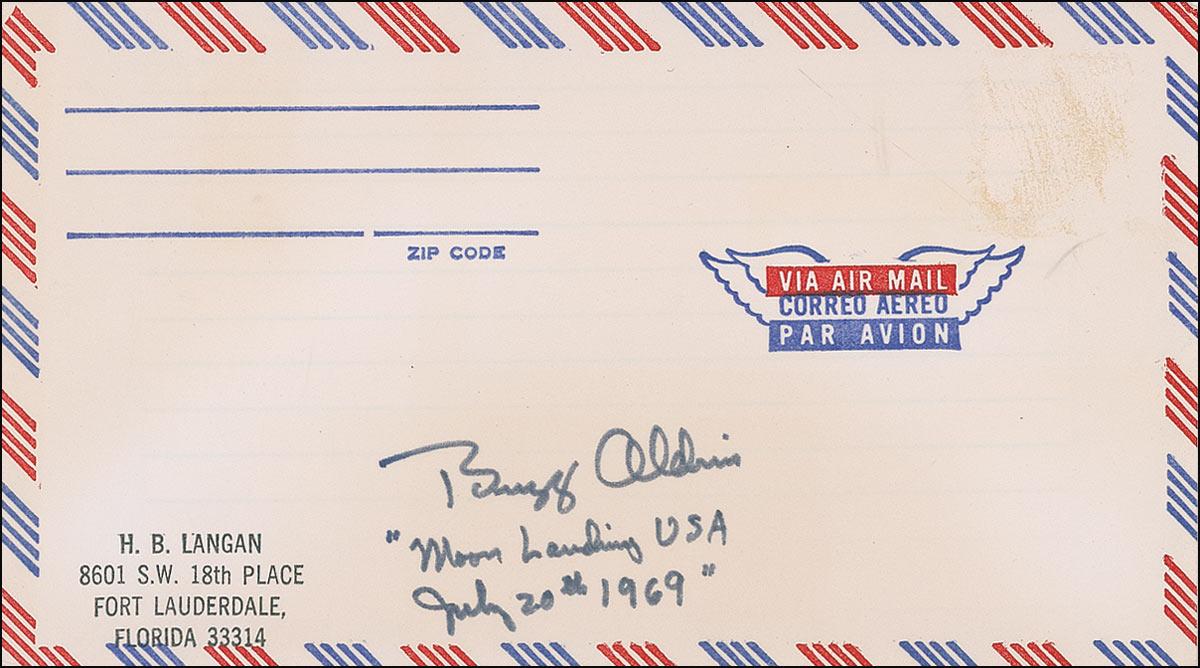 ZIP CODE
VIA AIR MAIL
CORREO AEREO
PAR AVION
Buzz Aldrin
"Moon Landing USA
July 20th 1969"
H. B. LANGAN
8601 S.W. 18th PLACE
FORT LAUDERDALE,
FLORIDA 33314